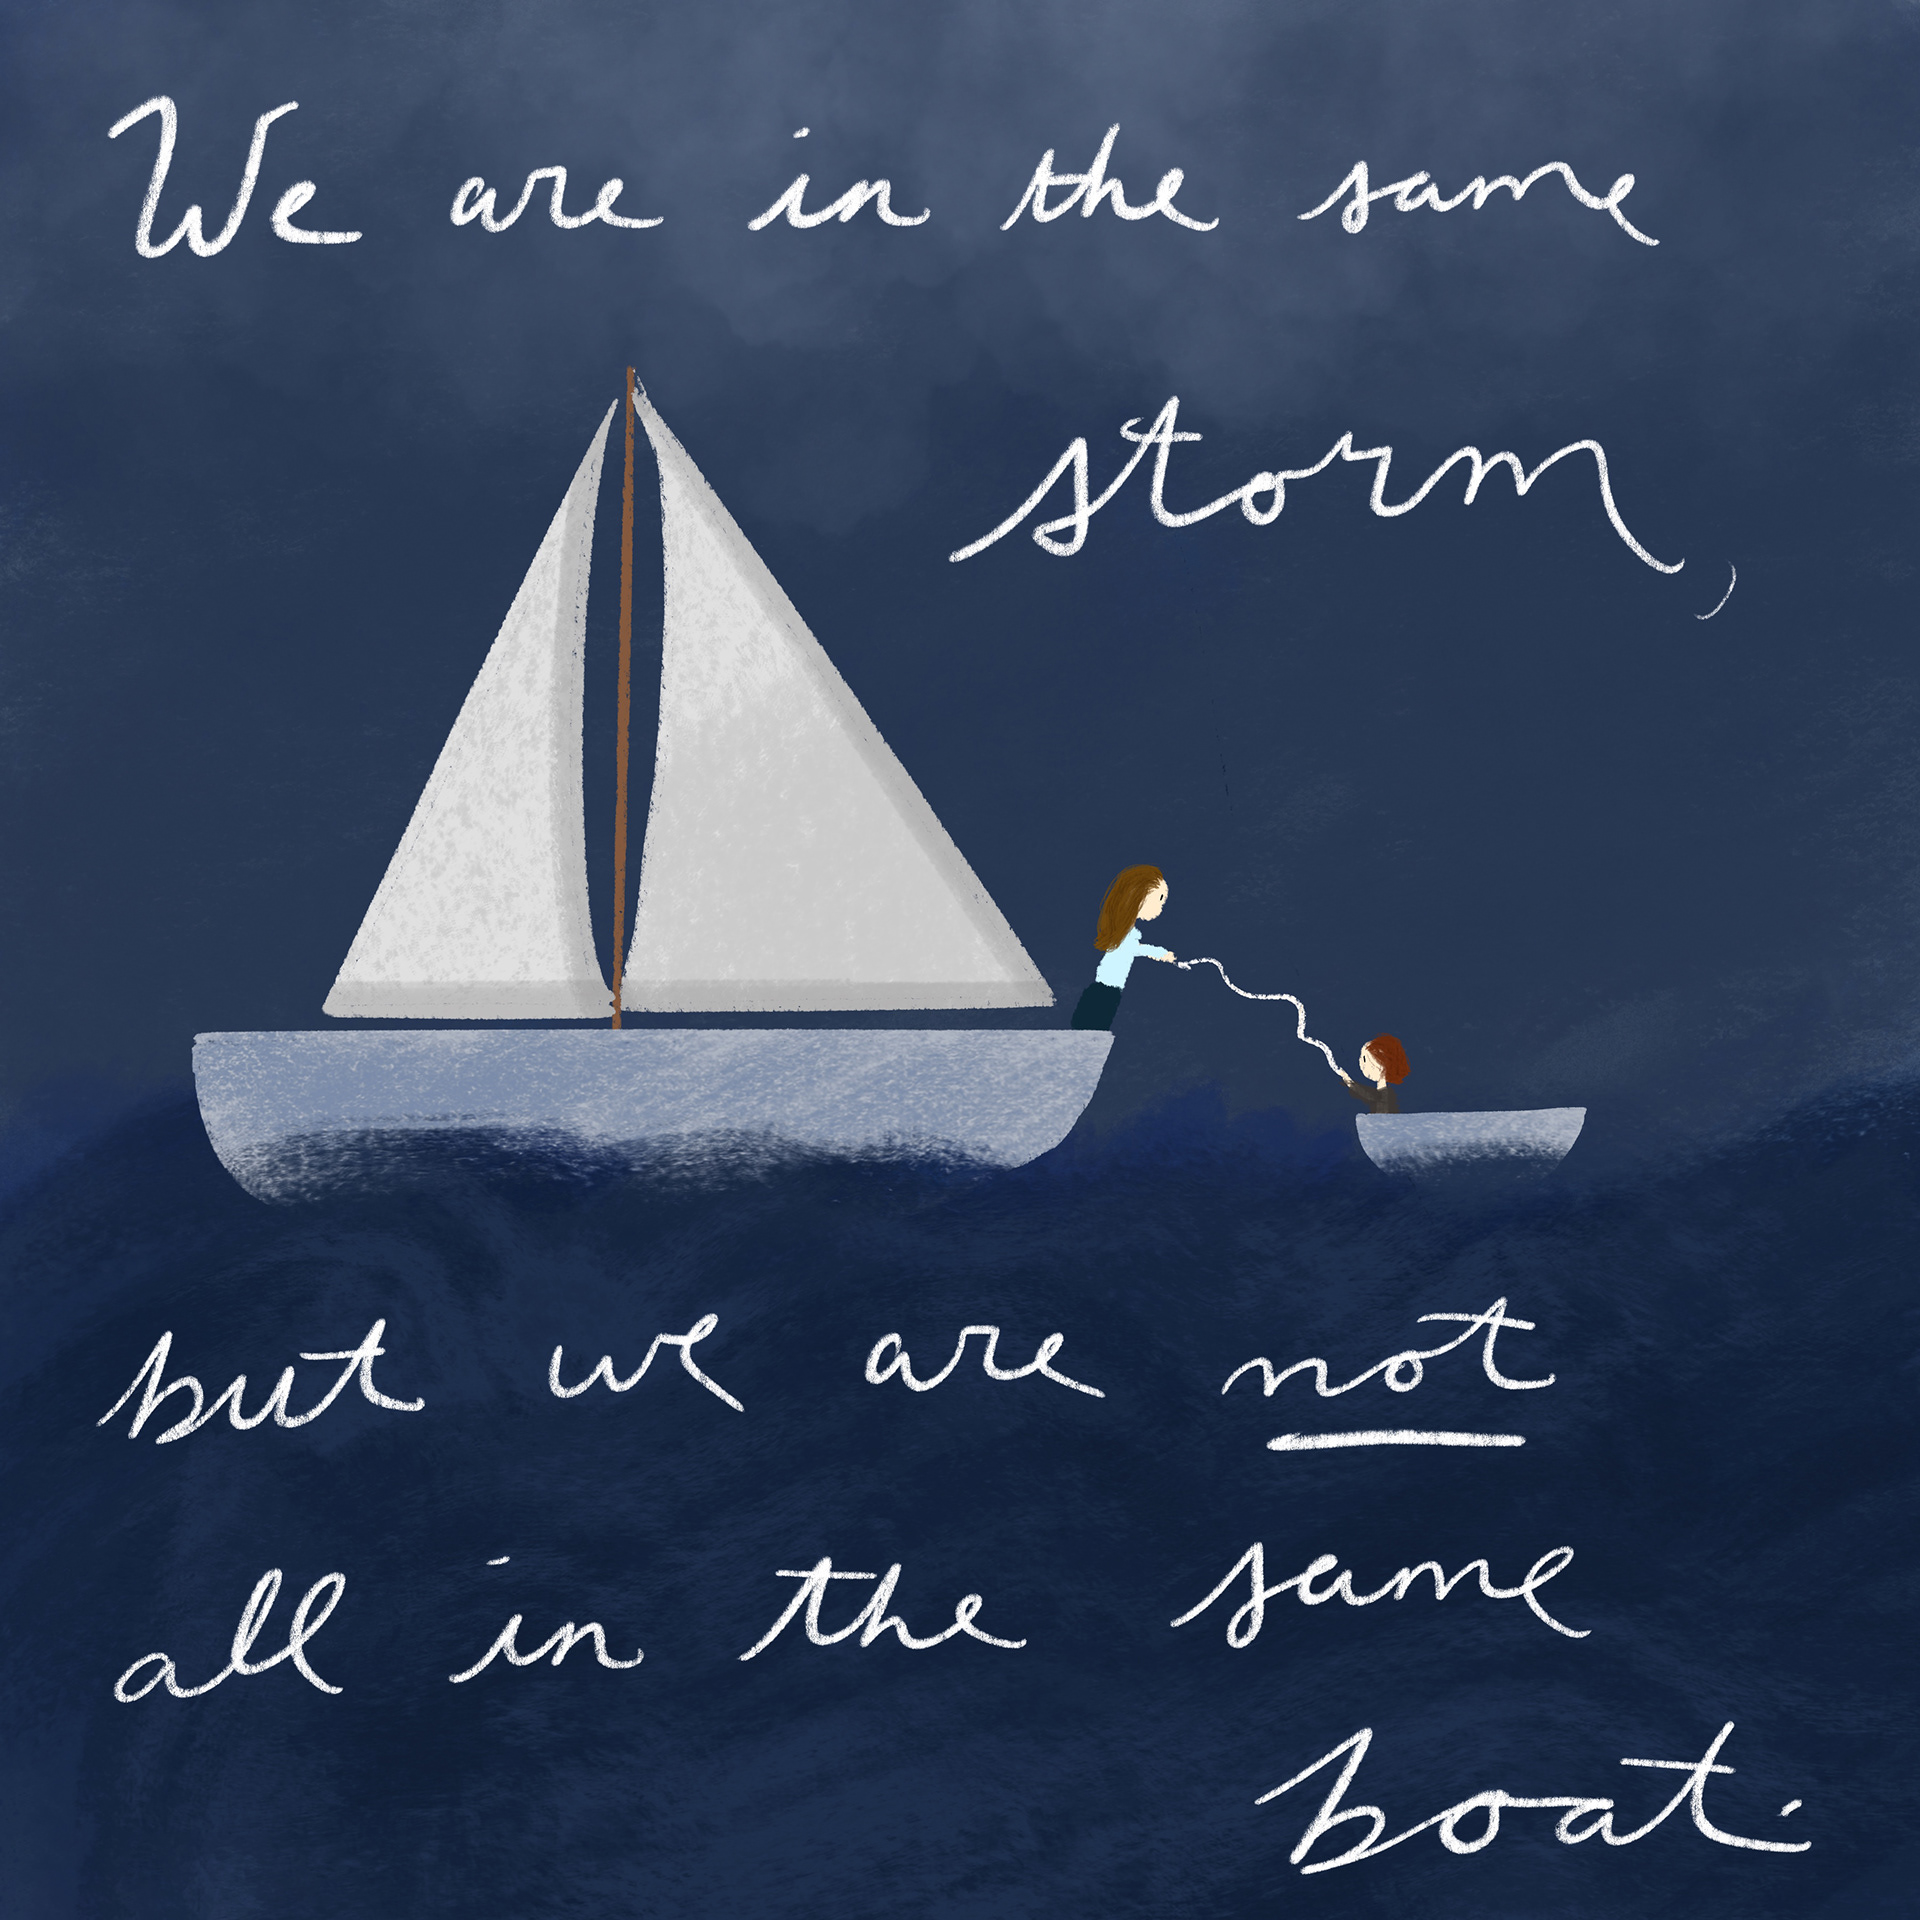 We are in the same
storm,
but we are not
all in the same
boat.